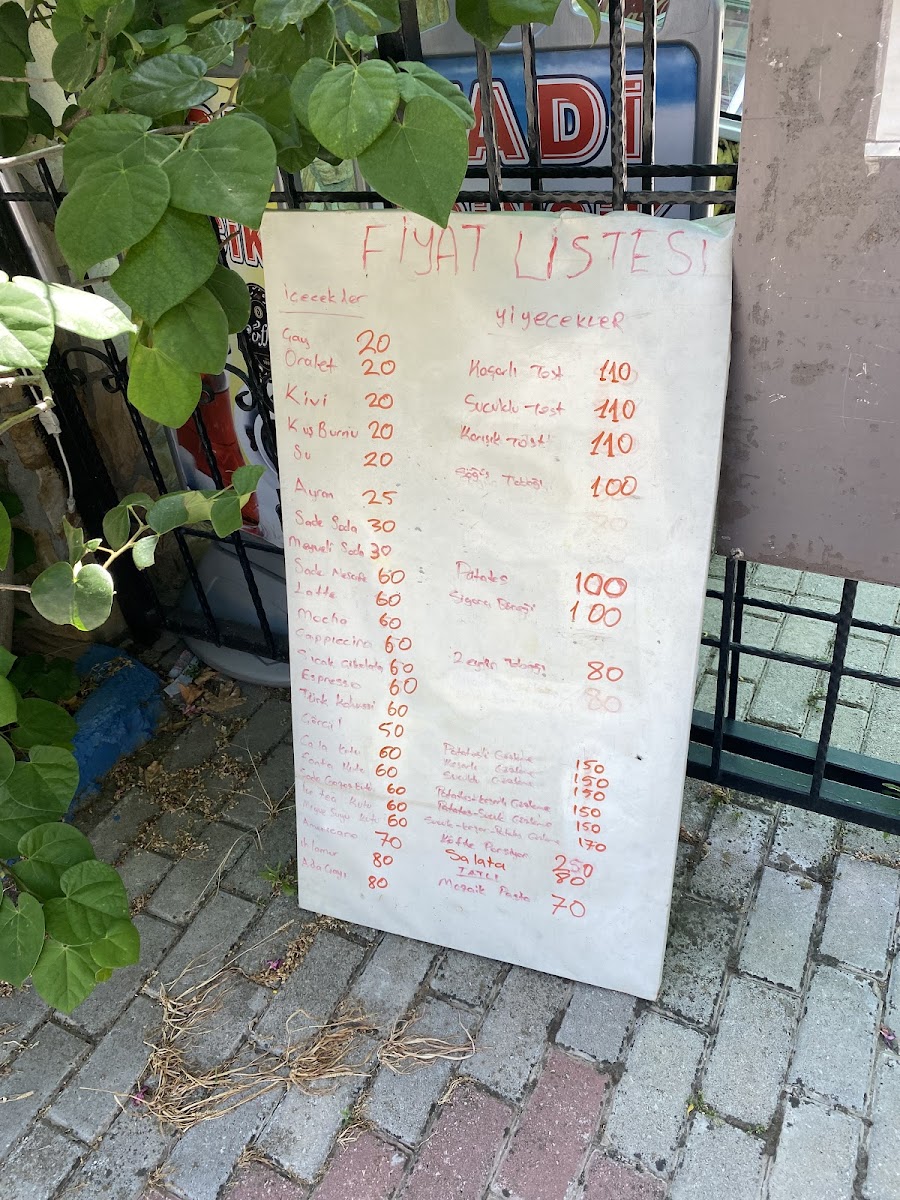 ADİ
FİYAT LİSTESİ
içecekler
Çay 20
Oralet 20
Kivi 20
Kuş Burnu 20
Su 20
Ayran 25
Sade Soda 30
Meyveli Soda 30
Sade Nescafe 60
Latte 60
Mocha 60
Cappiecino 60
Sıcak Çikolata 60
Espresso 60
Türk Kahvesi 60
50
Cola Kutu 60
Fanta Kutu 60
60
Ice Tea Kutu 60
Meyve Suyu Kutu 60
Americano 70
Ihlamur 80
Ada Çayı 80
yiyecekler
Kaşarlı Tost 110
Sucuklu Tost 110
Karışık Tost 110
Söğüş Tabağı 100
Patates 100
Sigara Böreği 100
Zeytin Tabağı 80
80
Patatesli Gözleme 150
Peynirli Gözleme 150
Sucuklu Gözleme 150
Patates-Peynirli Gözleme 150
Patates-Sucuk Gözleme 150
170
Köfte Porsiyon 250
Salata 80
TATLI
Mozaik Pasta 70